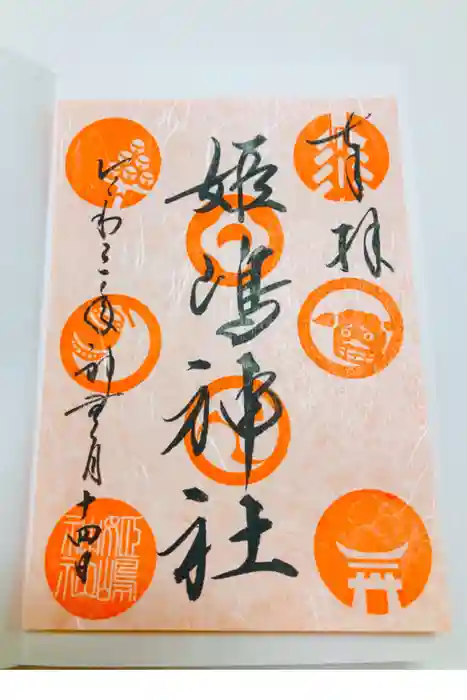 奉拝
姫嶋神社
令和三年神無月十四日
姫嶋神社